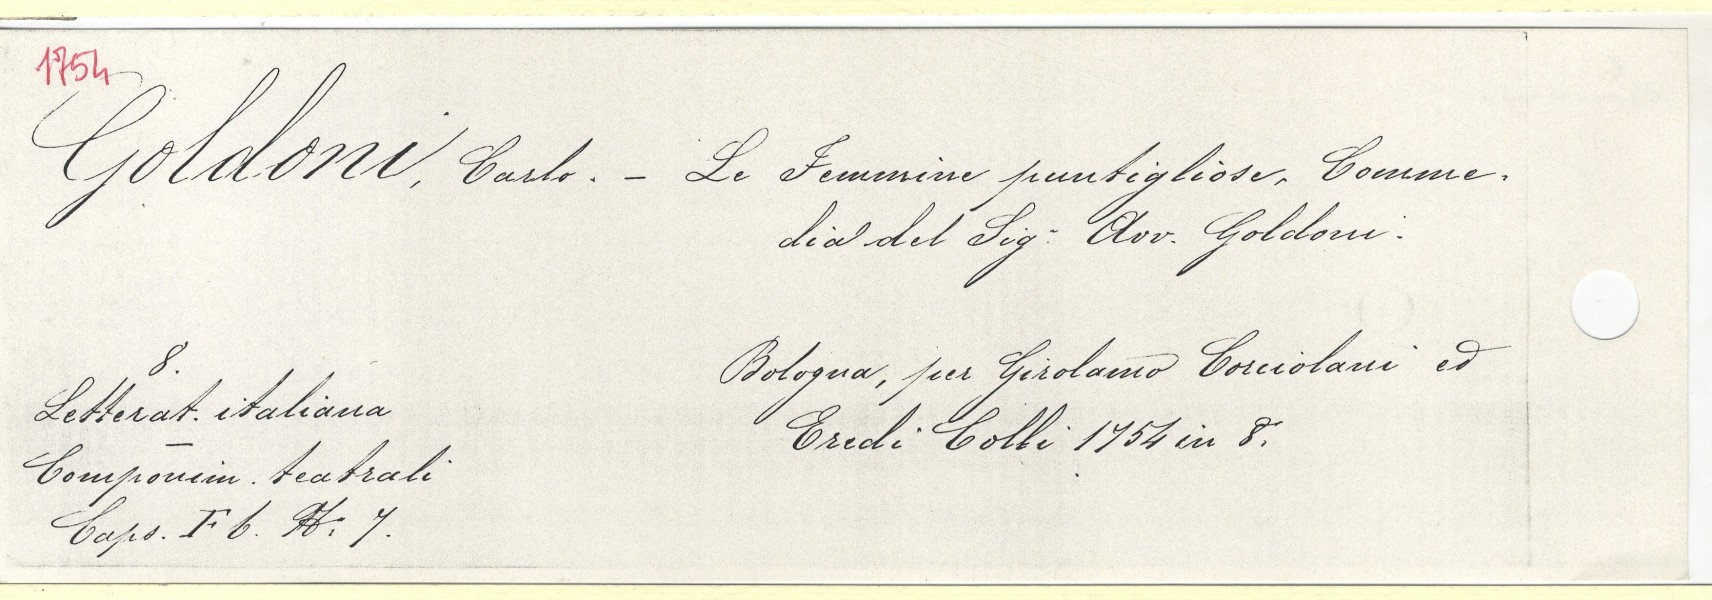 1754
Goldoni, Carlo. – Le Femmine puntigliose, Comme-
dia del Sig.r Avv. Goldoni.
Bologna, per Girolamo Corciolani ed
Eredi Colli 1754 in 8.
8.
Letterat. italiana
—
Componim. teatrali
Caps. F 6. N. 7.